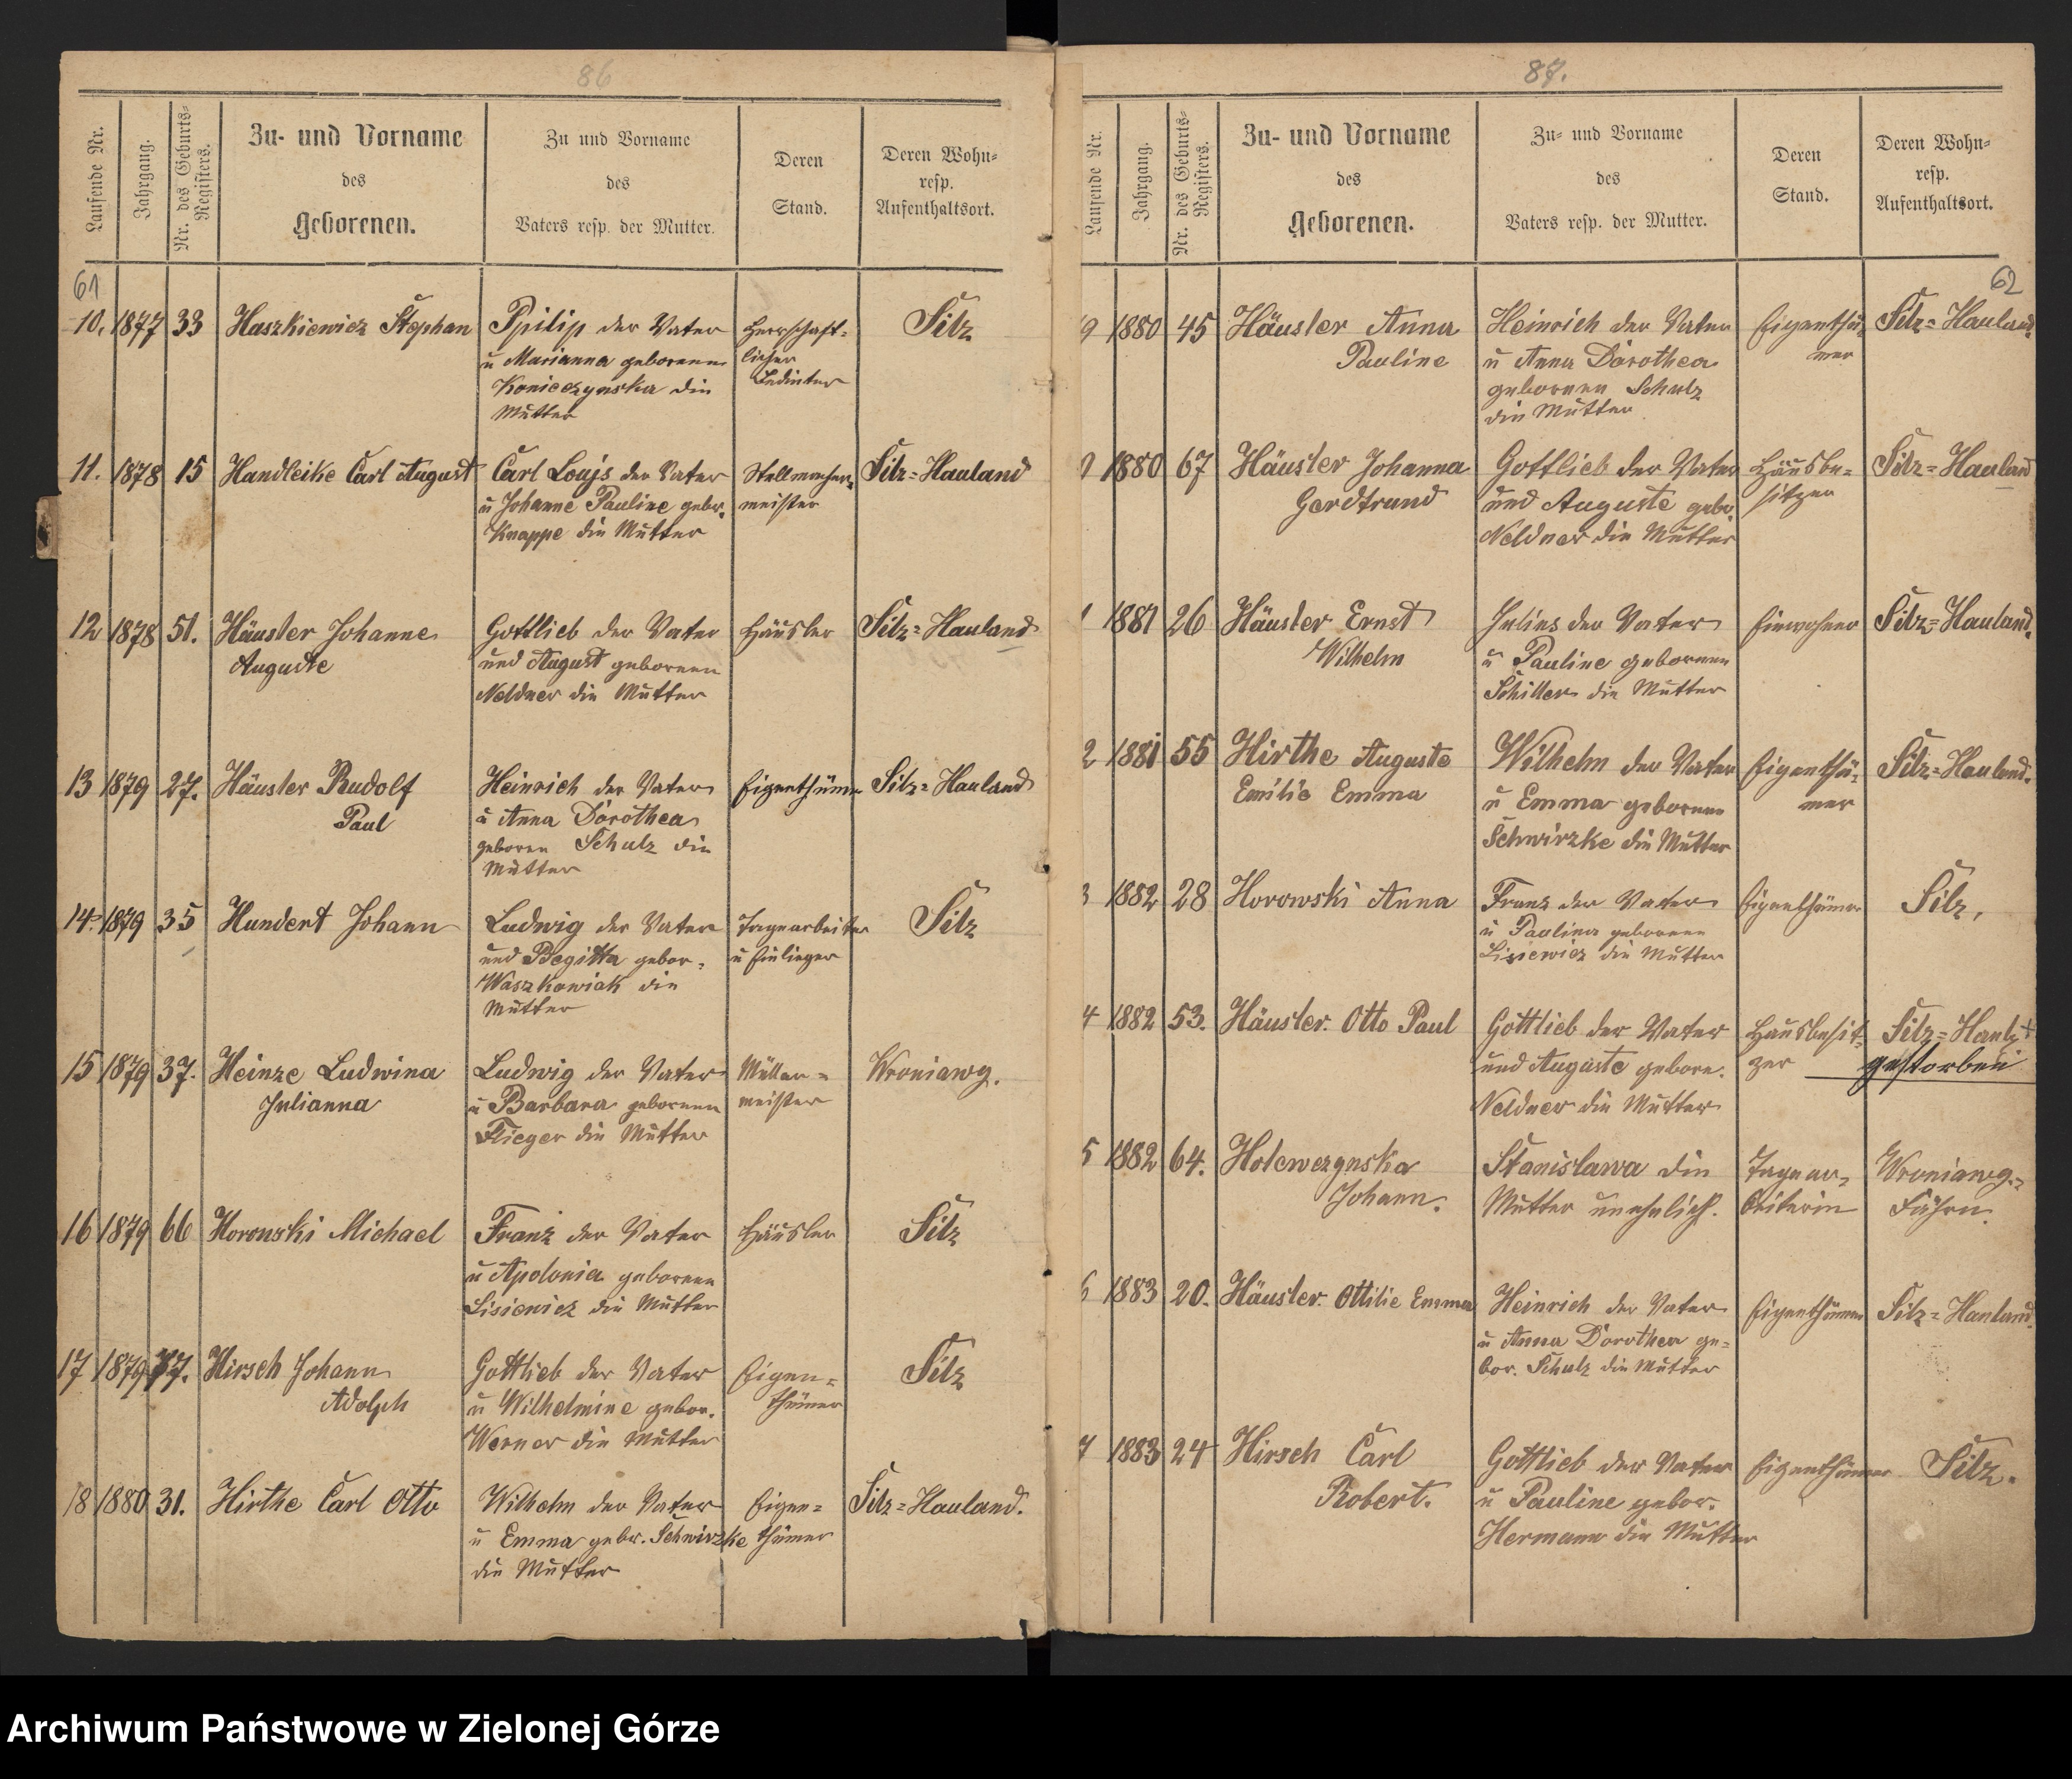 86
Laufende Nr.
Jahrgang.
Nr. des Geburts-
Registers.
Zu- und Vorname
des
Geborenen.
Zu und Vorname
des
Vaters resp. der Mutter.
Deren
Stand.
Deren Wohn-
resp.
Aufenthaltsort.
61
10. 1877 33 Haszkiewicz Stephan Ppilip der Vater Herrschaft- Silz
u Marianna geborene licher
Koniczynska die Bedinter
Mutter
11. 1878 15 Handleike Carl August Carl Loujs der Vater Stellmacher- Silz-Hauland
u Johanne Pauline gebor. meister
Knappe die Mutter
12 1878 51. Häusler Johanne Gottlieb der Vater Häusler Silz-Hauland
Auguste und August geborenen
Neldner die Mutter
13 1879 27. Häusler Rudolf Heinrich der Vater Eigenthümer Silz-Hauland
Paul u Anna Dorothea
geboren Schulz die
Mutter
14. 1879 35 Hundert Johann Ludwig der Vater Tagearbeiter Silz
und Begitta gebor- u Einlieger
Waszkowiak die
Mutter
15 1879 37. Heinze Ludwina Ludwig der Vater Müller- Wroniawy.
Julianna u Barbara geborenen meister
Flieger die Mutter
16 1879 66 Horowski Michael Franz der Vater Häusler Silz
u Apolonia geborenen
Lisiewicz die Mutter
17 1879 77. Hirsch Johann Gottlieb der Vater Eigen- Silz
Adolph u Wilhelmine gebor. thümer
Werner die Mutter
18 1880 31. Hirthe Carl Otto Wilhelm der Vater Eigen- Silz-Hauland.
u Emma gebor. Schwirzke thümer
die Mutter
87.
Laufende Nr.
Jahrgang.
Nr. des Geburts-
Registers.
Zu- und Vorname
des
Geborenen.
Zu- und Vorname
des
Vaters resp. der Mutter.
Deren
Stand.
Deren Wohn-
resp.
Aufenthaltsort.
62
9 1880 45 Häusler Anna Heinrich der Vater Eigenthü- Silz-Hauland.
Pauline u Anna Dorothea mer
geborenen Schulz
die Mutter
1880 67 Häusler Johanna Gottlieb der Vater Häusbe- Silz-Hauland
Gerdtrand und Auguste gebo. sitzer
Neldner die Mutter
1 1881 26 Häusler Ernst Julius der Vater Einwohner Silz-Hauland.
Wilhelm u Pauline geborenen
Schiller die Mutter
2 1881 55 Hirthe Auguste Wilhelm der Vater Eigenthü- Silz-Hauland.
Emilie Emma u Emma geborenen mer
Schwirzke die Mutter
3 1882 28 Horowski Anna Franz der Vater Eigenthümer Silz,
u Paulina geborenen
Lisiewicz die Mutter
4 1882 53. Häusler. Otto Paul Gottlieb der Vater Hausbesit- Silz-Haul +
und Auguste gebore. zer gestorben
Neldner die Mutter
5 1882 64. Holewczynska Stanislawa die Tagear- Wroniawy-
Johann. Mutter unehelich. beiterin Fähre.
6 1883 20. Häusler. Ottilie Emma Heinrich der Vater Eigenthümer Silz-Hauland.
u Anna Dorothea ge-
bor. Schulz die Mutter
7 1883 24 Hirsch Carl Gottlieb der Vater Eigenthümer Silz.
Robert. u Pauline gebor.
Hermann die Mutter
Archiwum Państwowe w Zielonej Górze